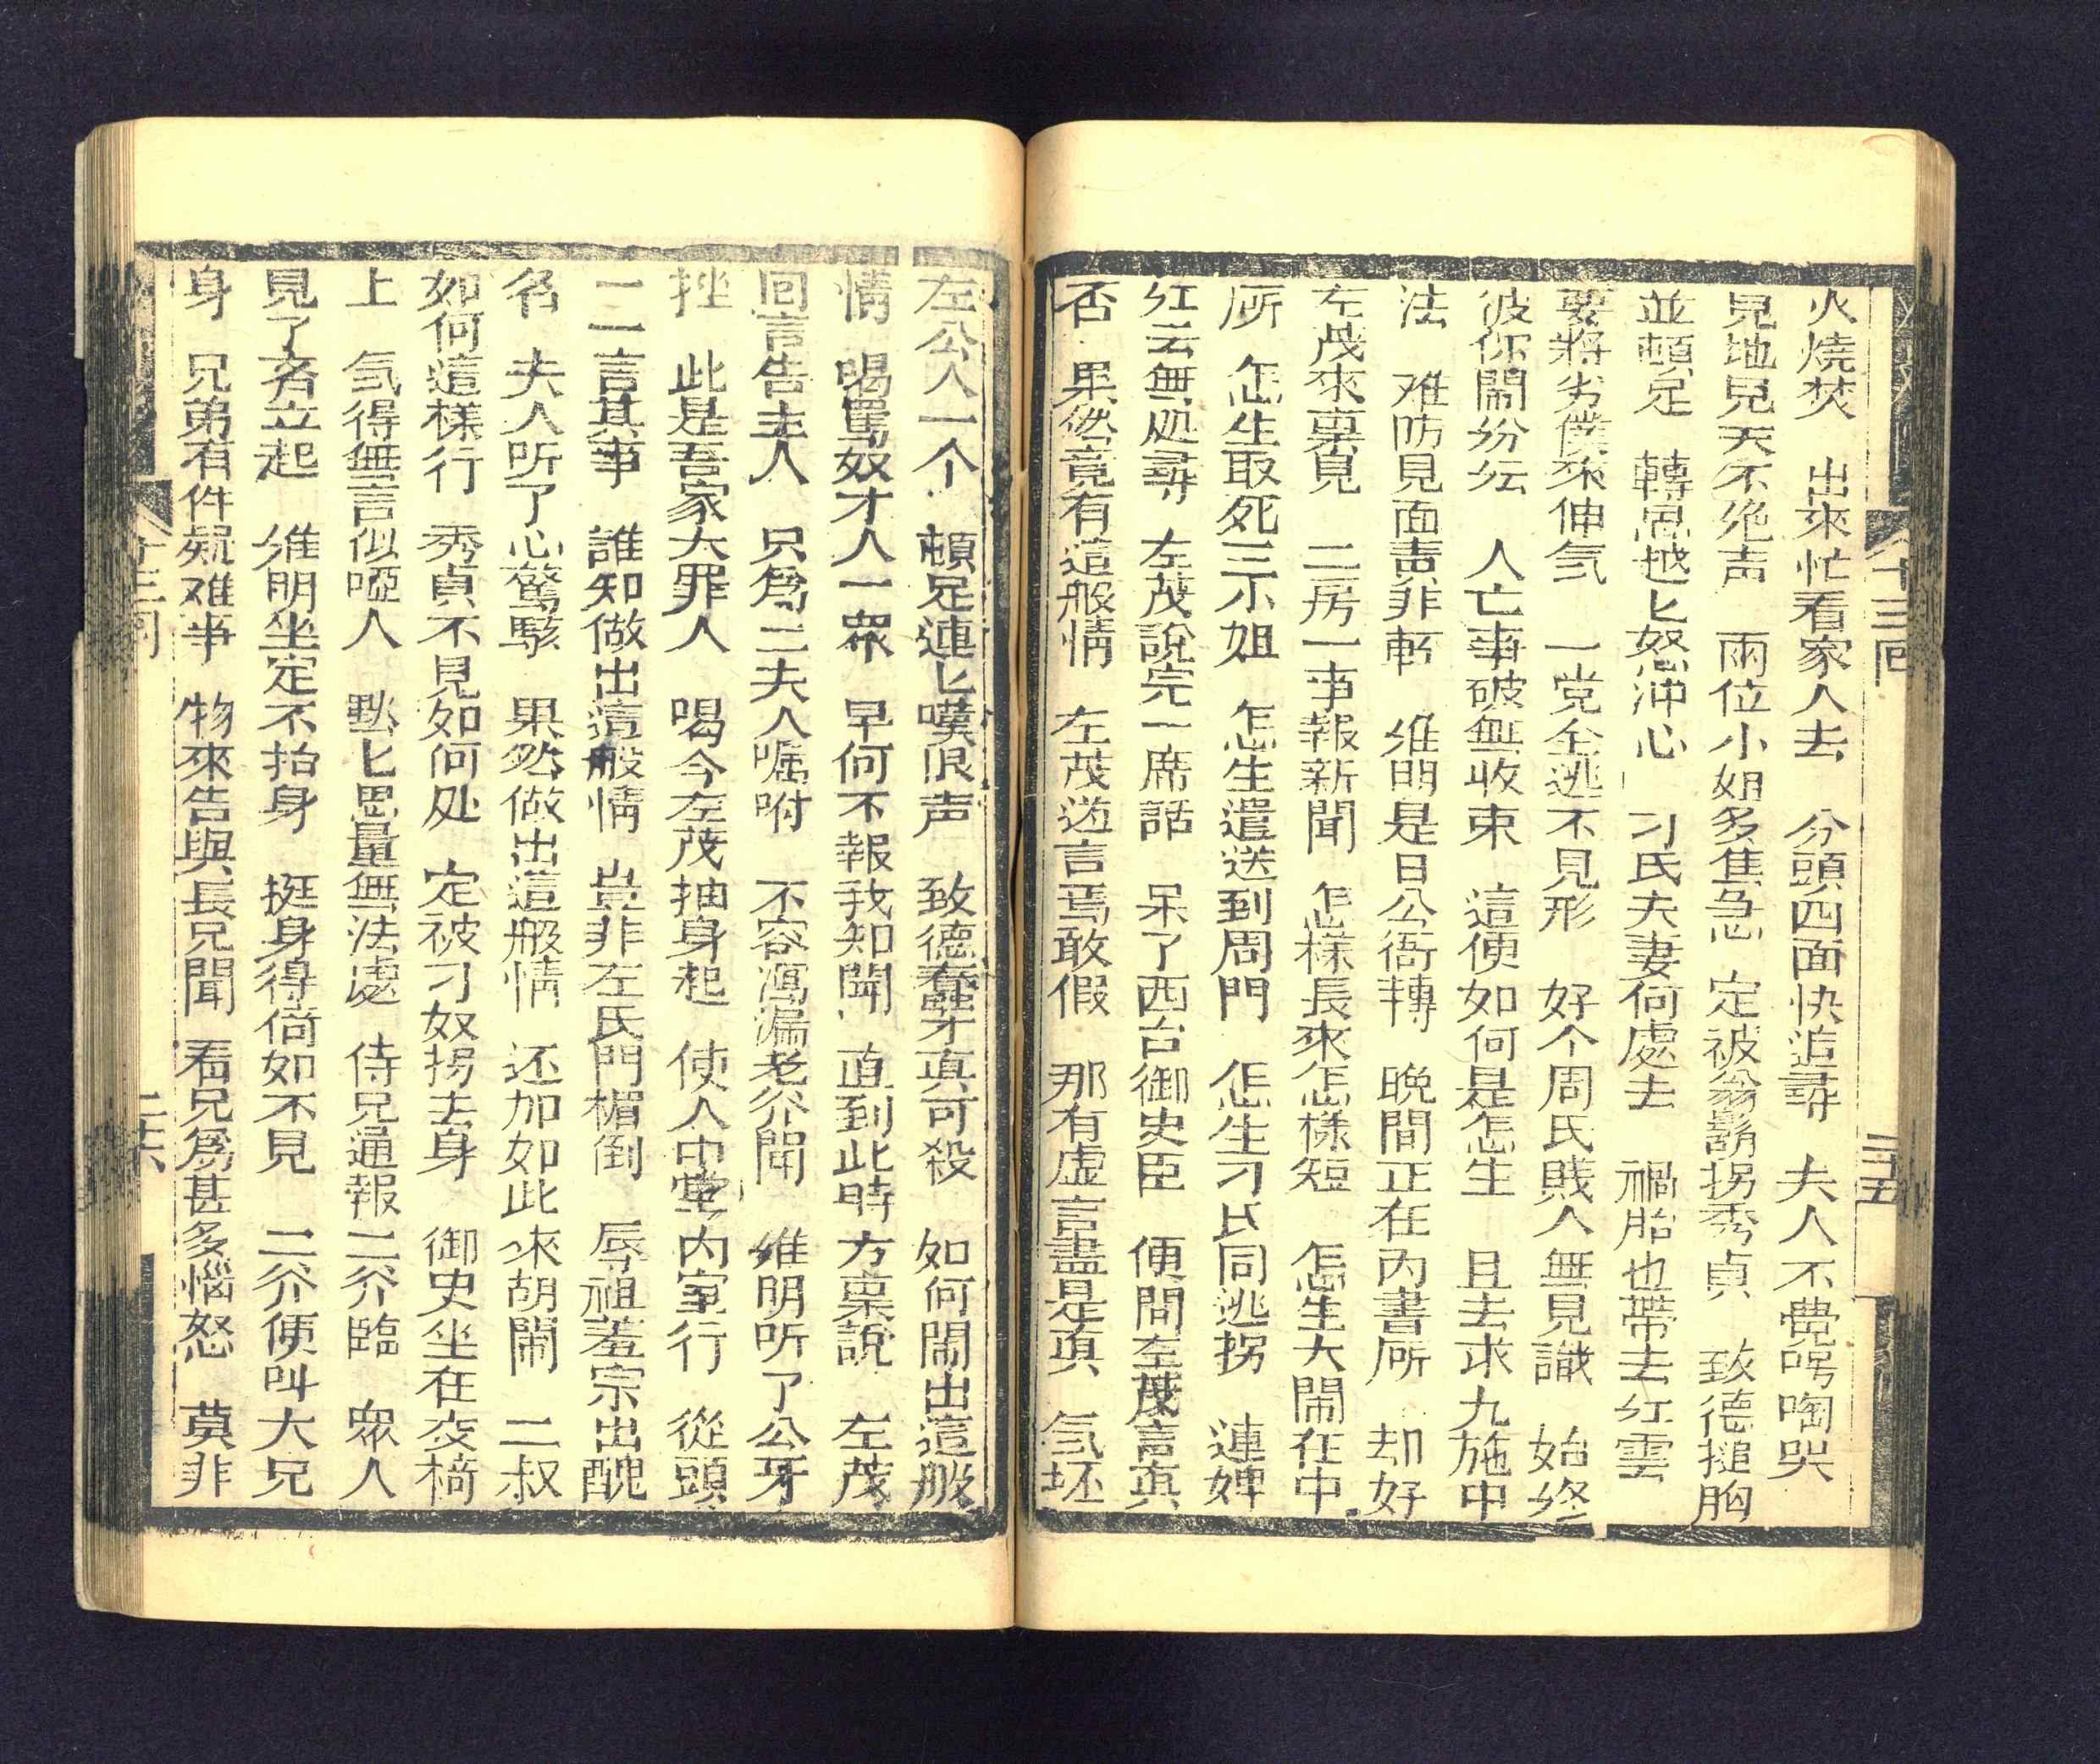 火燒焚　出來忙看家人去　分頭四面快追尋　夫人不覺呺啕哭
見地見天不绝声　兩位小姐多焦急　定被翁鬍拐秀貞　致德搥胸
並頓足　轉思越匕怒冲心　刁氏夫妻何處去　禍胎也帶去红雲
要將劣僕來伸氣　一党全逃不見形　好个周氏賎人無見識　始終
彼你鬧纷纭　人亡事破無收束　這便如何是怎生　且去求九施中
法　难防見面責非輕　维明是日公衙轉　晚間正在內書所　却好
左茂來禀見　二房一事報新聞　怎樣長來怎樣短　怎生大鬧在中
所　怎生取死三小姐　怎生遣送到周門　怎生刁氏同逃拐　連婢
红云無処尋　左茂說完一席話　呆了西台御史臣　便問左茂言真
否　果然竟有這般情　左茂道言焉敢假　那有虚言盡是真　氣坯
左公人一个　頓足連匕嘆恨声　致德蠢牙真可殺　如何鬧出這般
情　喝罵奴才人一眾　早何不報我知聞　直到此時方禀說　左茂
回言告夫人　只為二夫人嘱咐　不容瀉漏老尒聞　维明听了公牙
挫　此是吾家大罪人　喝令左茂抽身起　使入中堂內室行　從頭
一一言其事　誰知做出這般情　豈非左氏門楣倒　辱祖羞宗出醜
名　夫人听了心驚駭　果然做出這般情　还加如此來胡鬧　二叔
如何這樣行　秀貞不見如何处　定被刁奴拐去身　御史坐在交椅
上　氣得無言似啞人　默匕思量無法處　侍兒通報二尒臨　眾人
見了齐立起　维明坐定不抬身　挺身得倚如不見　二尒便叫大兄
身　兄弟有件疑难事　物來告與長兄聞　看兄為甚多惱怒　莫非
十三囘
二十五
十三囘
二十六